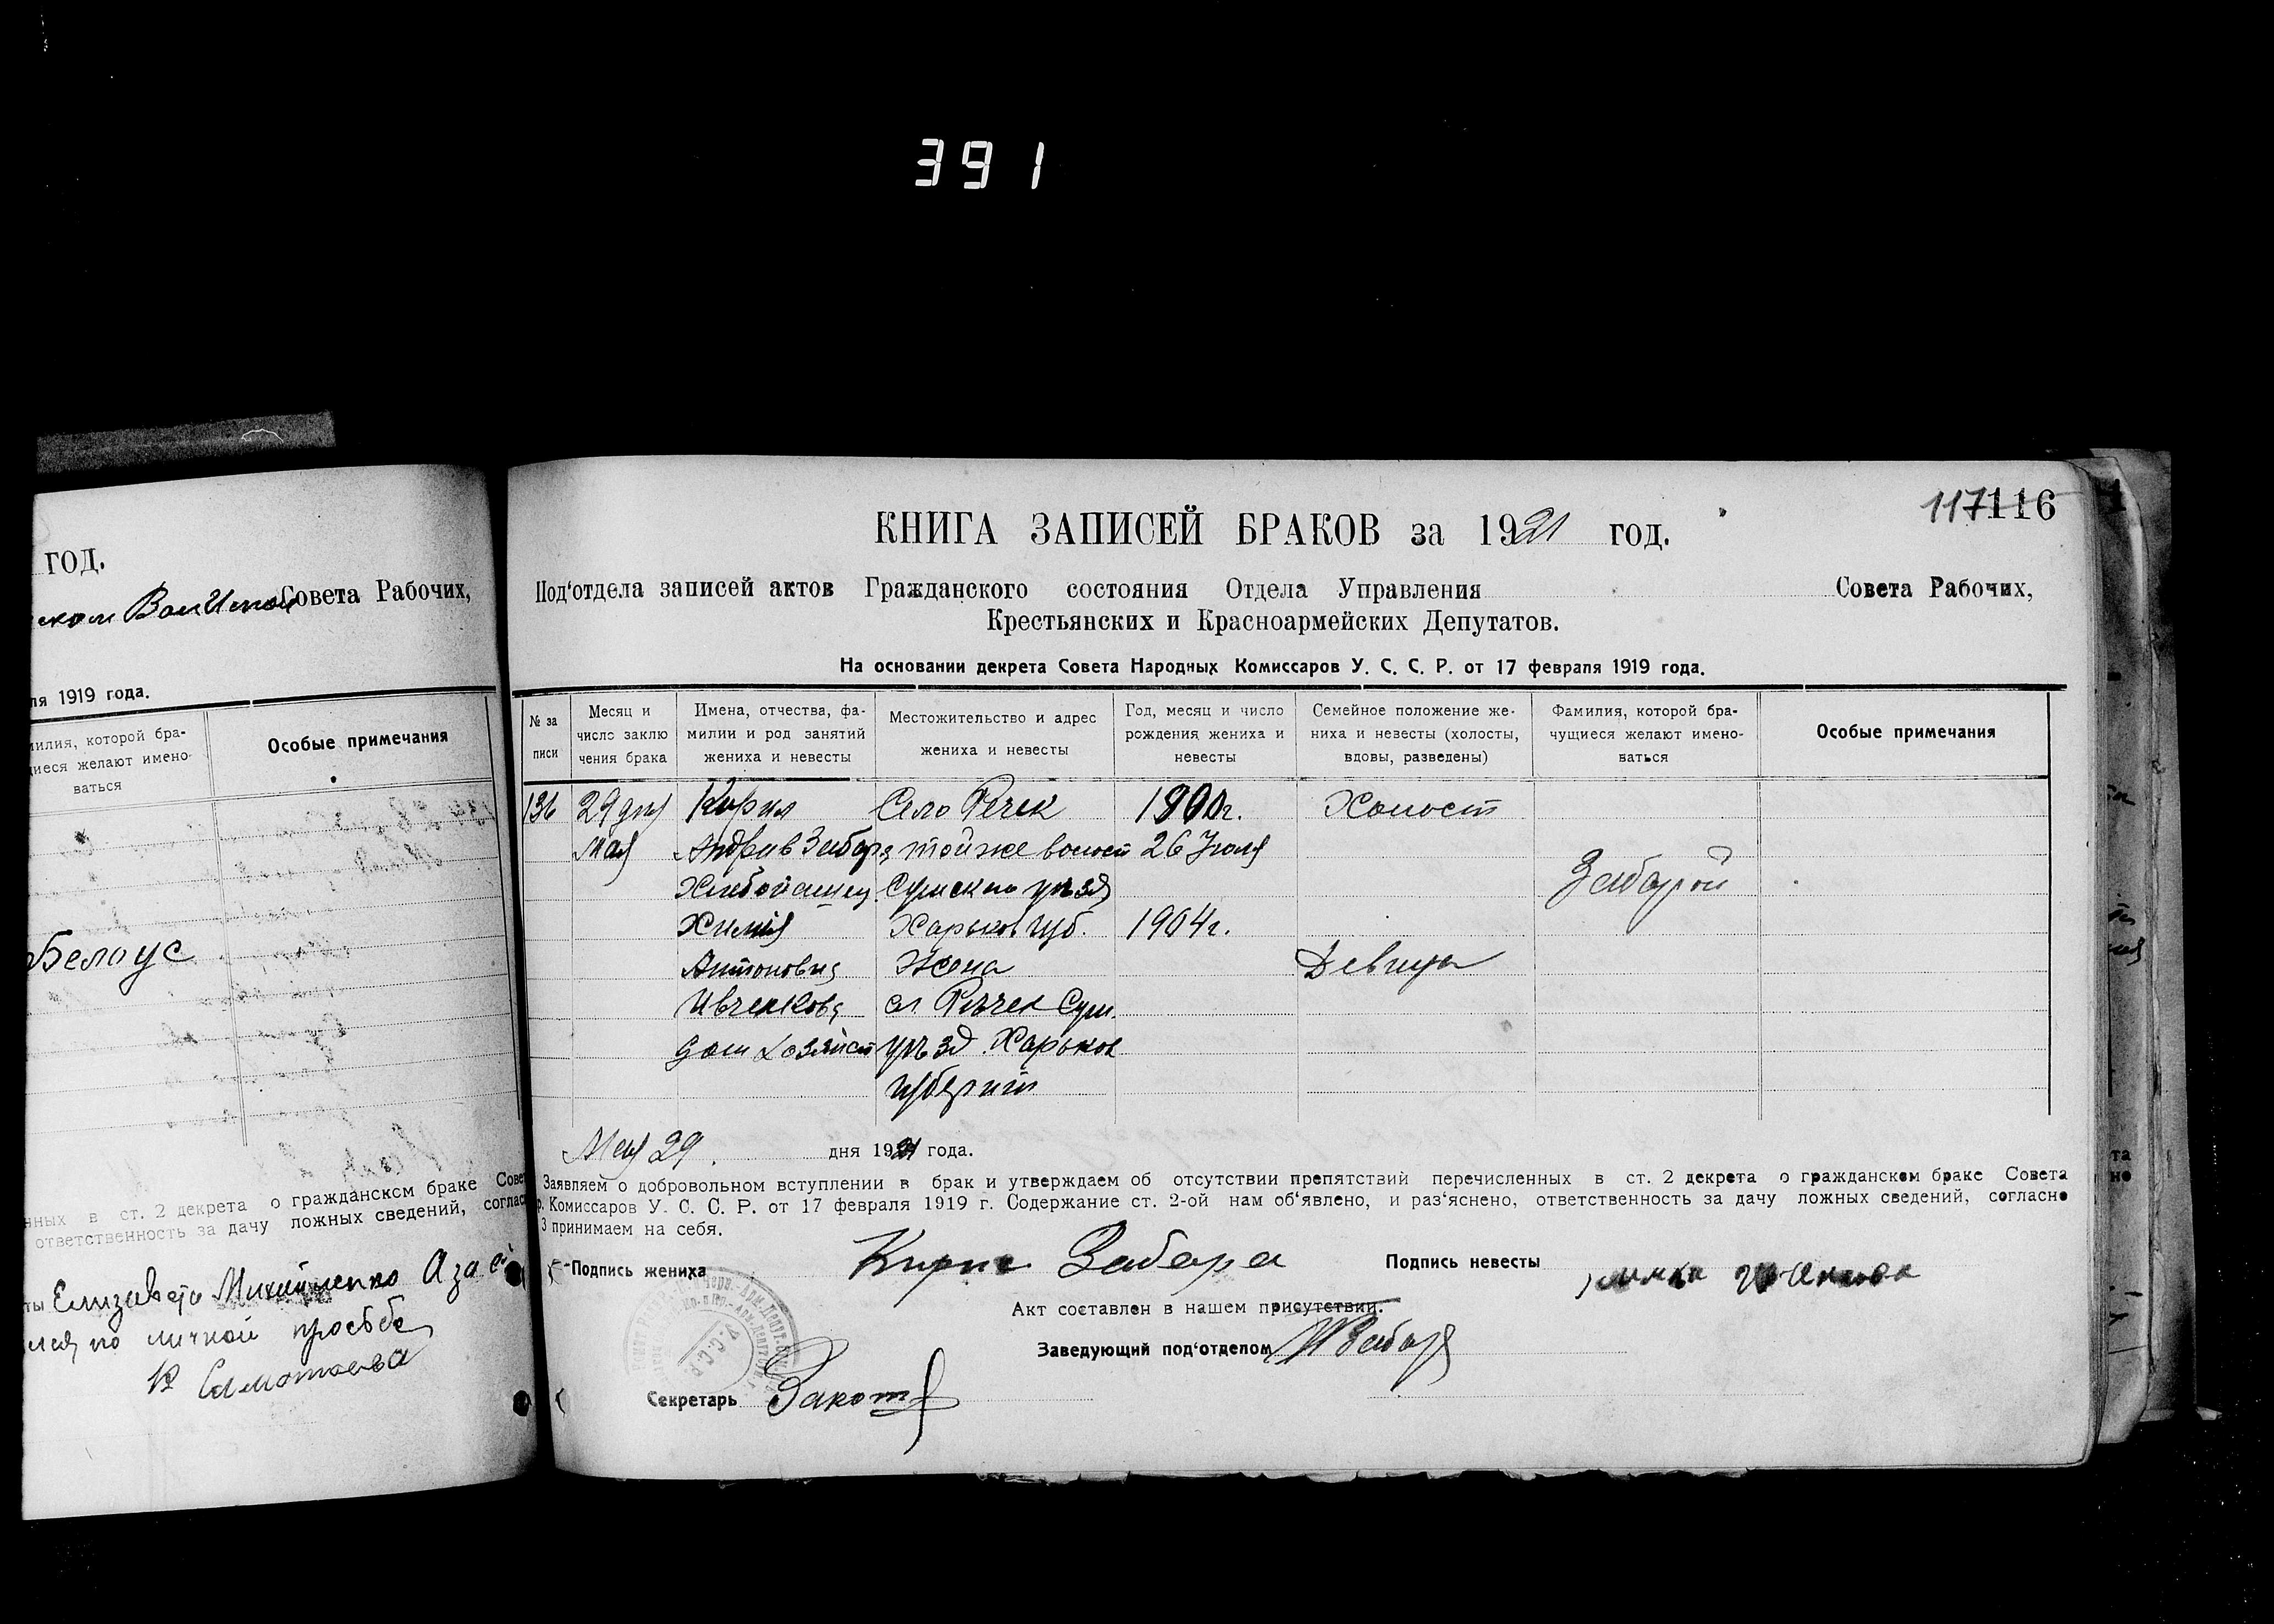 391
год.
Совета Рабочих,
1919 года.
которой бра-
желают имено-
ваться
Особые примечания
Белоус
в ст. 2 декрета о гражданском браке
ответственность за дачу ложных сведений,
Елизавета
по личной просьбе
117 116
КНИГА ЗАПИСЕЙ БРАКОВ за 1921 год.
Под‘отдела записей актов Гражданского состояния Отдела Управления Совета Рабочих,
Крестьянских и Красноармейских Депутатов.
На основании декрета Совета Народных Комиссаров У. С. С. Р. от 17 февраля 1919 года.
№ за
писи
Месяц и
число заклю
чения брака
Имена, отчества, фа-
милии и род занятий
жениха и невесты
Местожительство и адрес
жениха и невесты
Год, месяц и число
рождения жениха и
невесты
Семейное положение же-
ниха и невесты (холосты,
вдовы, разведены)
Фамилия, которой бра-
чущиеся желают имено-
ваться
Особые примечания
136 29 дня Кирил Село Речек 1900г. Холост
Мая Забора тойже волост 26 Июля
Сумского уъзд Забарой
Харьков губ. 1904г.
Антоновна Жена Девица
Ивченкова сл Ръчек Сум.
дом хозяйст уъзд. Харьков
губерит
Мая 29. дня 1921 года.
Заявляем о добровольном вступлении в брак и утверждаем об отсутствии препятствий перечисленных в ст. 2 декрета о гражданском браке Совета
р. Комиссаров У. С. С. Р. от 17 февраля 1919 г. Содержание ст. 2-ой нам об‘явлено, и раз‘яснено, ответственность за дачу ложных сведений, согласно
3 принимаем на себя.
Подпись жениха Кирил Забара Подпись невесты
Акт составлен в нашем присутствии.
Заведующий под‘отделом
Секретарь